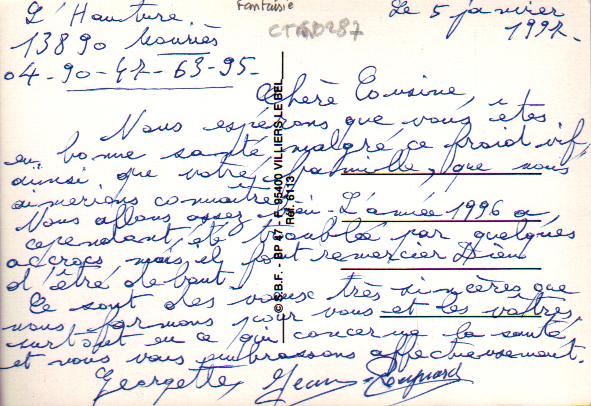 L'Hauture
13890 Mouriès
04-90-47-63-95-
Fantaisie
CTMD287
Le 5 janvier
1997.
Chère Cousine,
Nous espérons que vous êtes
en bonne santé, malgré ce froid vif,
ainsi que votre famille, que nous
aimerions connaître.
Nous allons assez bien. L'année 1996 a
cependant été troublée par quelques
accrocs mais il faut remercier Dieu
d'être debout.
Ce sont des voeux très sincères que
nous formons pour vous et les vôtres,
surtout en ce qui concerne la santé,
et nous vous embrassons affectueusement.
Georgette, Jean
© S.B.F. - BP 87 - F. 95400 VILLIERS LE BEL
Réf. 6113